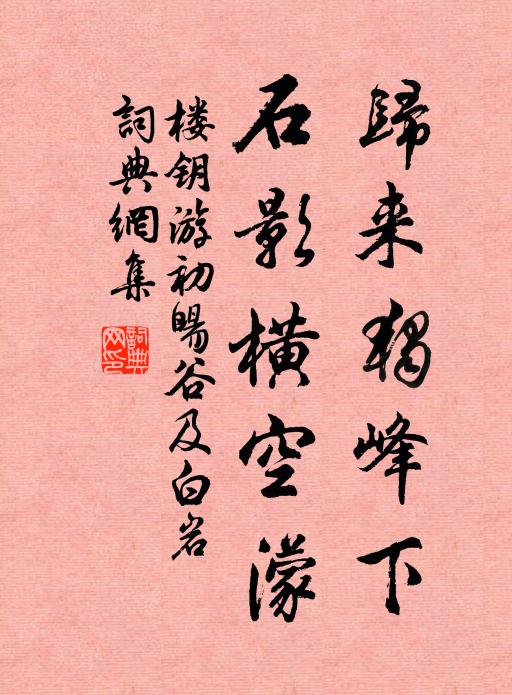 歸来獨峰下
石影橫空濛
楼钥游初暘谷及白岩
詞典網集
詞典网印